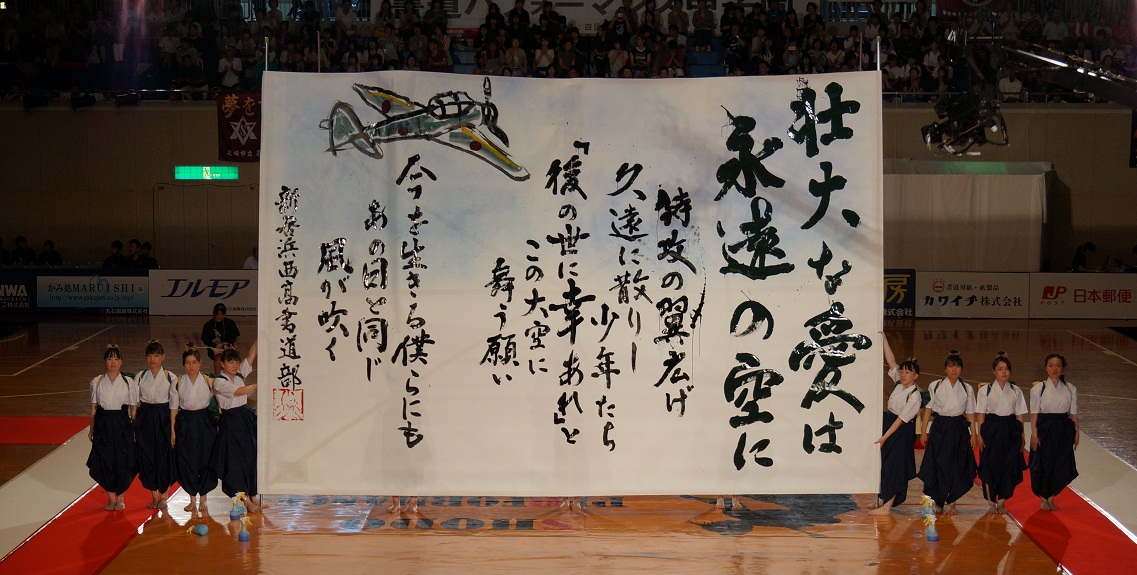 書道パフォーマンス甲子園
壮大な愛は
永遠の空に
特攻の翼広げ
久遠に散りし
少年たち
「後の世に幸あれ」と
この大空に
舞う願い
今を生きる僕らにも
あの日と同じ
風が吹く
新居浜西高書道部
夢を
かみ処MARUISHI
エルモア
房
カワイチ株式会社
日本郵便